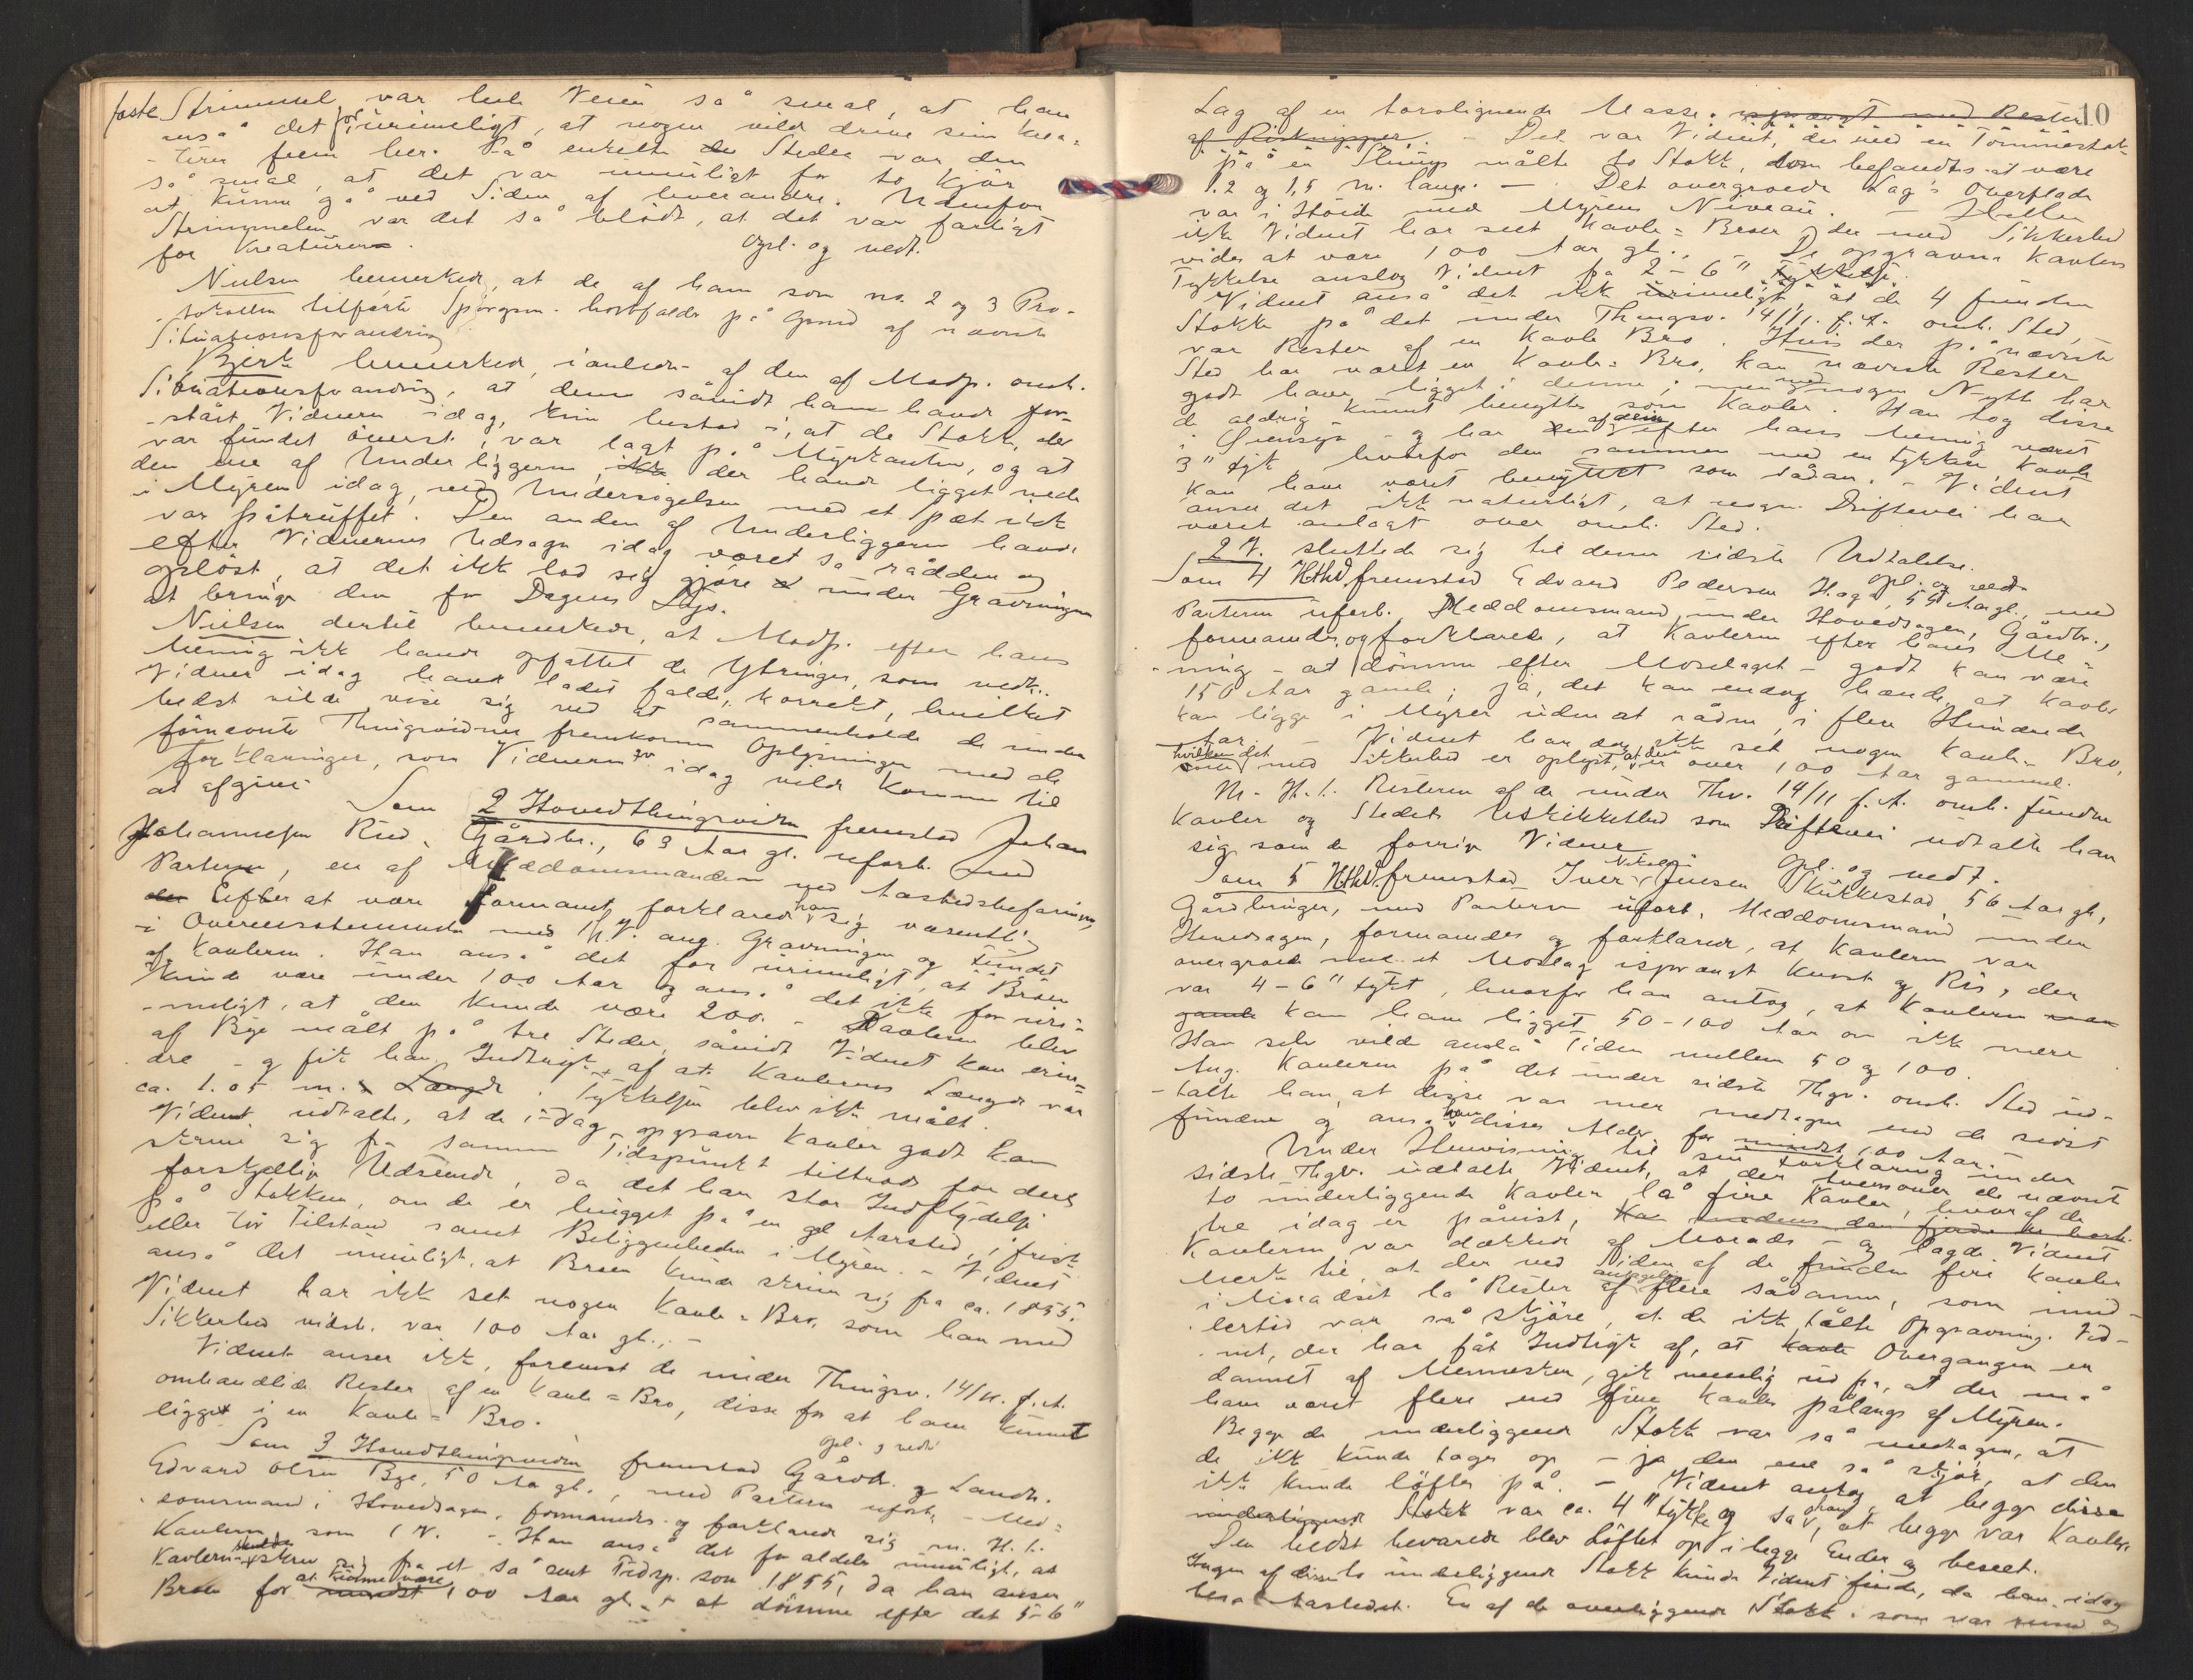 faste Strimmel, var hele Veien så smal, at han
anså det for urimeligt, at nogen vilde drive sine Krea-
-turer frem her. På enkelte Steder var den
så smal, at det var umuligt for to Kjör
at kunne gå ved Siden af hverandre. Udenfor
Strimmelen var det så blödt, at det var farligt
for Kreaturer.
Opl. og vedt.
Nielsen bemerkede, at de af ham som no. 2 og 3 Pro-
-tokollen tilförte Spörgsm. bortfalder på Grund af nævnte
Situationsforandring
Bjerke bemerkede, i anledn. af den af Modp. omh.
Situationsforandring, at denne såvidt han havde for-
-stået Vidnerne idag, kun bestod i, at de Stokke, der
var fundet överst, var lagt på Myrkanten, og at
den ene af Underliggerne, der havde ligget nede
i Myren idag, ved Undersögelsen med et Spæt ikke
var påtruffet. Den anden af Underliggerne havde
efter Vidnernes Udsagn idag været så rådden og
oplöst, at det ikke lod sig gjöre under Gravningen
at bringe den for Dagens Lys.
Nielsen dertil bemerkede, at Modp. efter hans
Mening ikke havde opfattet de Ytringer, som vedk.
Vidner idag havde ladet falde, korrekt, hvilket
bedst vilde vise sig ved at sammenholde de under
förnevnte Thingsvidner fremkomne Oplysninger med de
Forklaringer, som Vidnerne idag vilde komme til
at afgive
Som 2 Hovedthingsvidne fremstod Johan
Johannesen Rud, Gårdbr., 63 Aar gl. uforb. med
Parterne, en af Meddomsmændene ved Aastedsbefaringen,
Efter at være formanet, forklarede han sig væsentlig
i Overensstemmelse med 1ste V. ang. Gravningen og Fundet
af Kavlerne. Han anså det for urimeligt, at Broen
kunde være under 100 Aar og anså det ikke for uri-
-meligt, at den kunde være 200. – Kavlerne blev
af Bye målt på tre Steder, såvidt Vidnet kan erin-
dre – og fik han Indtrykk af at Kavlernes Længde var
ca. 1.05 m. Tykkelsen blev ikke målt.
Vidnet udtalte, at de i-dag opgravne Kavler godt kan
skrive sig fra samme Tidspunkt tiltrods for deres
forskjellige Udseende, da det har stor Indflydelse
på Stokken, om de er hugget på en gl Aarstid, i frisk
eller tör Tilstand samt Beliggenheden i Myren. – Vidnet
anså det umuligt, at Broen kunde skrive sig fra ca. 1855.
Vidnet har ikke set nogen Kavle-Bro, som han med
Sikkerhed vidste var 100 Aar gl. –
Vidnet anser ikke, forenvnt de under Thingsv. 14/11. f.A.
omhandlede Rester af en Kavle-Bro, disse for at have kunnet
ligget i en Kavle-Bro.
Opl. og vedt.
Som 3 Hovedthingsvidne fremstod Gårdb. og Landh.
Edvard Olsen Bye, 50 Aa gl., med Parterne uforb., – Med-
domsmand i Hovedsagen, formanedes og forklarede sig m. H. t.
Kavlerne som 1 V. – Han anså det for aldeles umuligt, at
Kavlerne skulde skrive sig fra et så sent Tidsp. som 1855, da han anser
Broen for at kunne være 100 Aar gl. – at dömme efter det 5-6"
10
Lag af en torvlignende Masse. ispængt med Rester
af Risknipper. – Det var Vidnet, der med en Tömmestok
på en Slump målte to Stokke, som befandtes at være
1.2 og 1,5 m. lange. – Det overgroede Lags Overflade
var i Höide med Myrens Niveau. – Heller
ikke Vidnet har seet Kavle-Broer, der med Sikkerhed
vides at være 100 Aar gl. – De opgravne Kavlers
Tykkelse anslog Vidnet fra 2-6"
Vidnet anså det ikke urimeligt, at de 4 fundne
Stokke på det under Thingsv. 14/11. f.A. omh. Sted,
var Rester af en Kavle Bro. Hvis der på nævnte
Sted har været en Kavle-Bro, kan nævnte Rester
godt have ligget i denne; men med nogen Nytte har
de aldrig kunnet benyttes som Kavler. Han tog disse
i Öiensyn – og har en af dem efter hans Mening været
3" tyk, hvorfor den sammen med en tykkere Kavle
kan have været benyttet som sådan. – Vidnet
anser det ikke naturligt, at nogen Driftevei har
været anlagt over omh. Sted.
2 V. sluttede sig til denne sidste Udtalelse.
Opl. og vedt.
Som 4 Hthv. fremstod Edvard Pedersen Hage, 55 Aar gl., med
Parterne uforb. Meddomsmand under Hovedsagen, Gårdbr.,
formanedes og forklarede, at Kavlerne efter hans Me-
-ning – at dömme efter Moselaget – godt kan være
150 Aar gamle; ja, det kan endog hænde, at Kavler
kan ligge i Myrer uden at rådne, i flere Hundrede
Aar. – Vidnet har dog ikke set nogen Kavle-Bro,
om hvilken det med Sikkerhed er oplyst, at den er over 100 Aar gammel.
M. H. t. Resterne af de under Thv. 14/11 f. A. omh. fundne
Kavler og Stedets Uskikkethed som Driftevei udtalte han
sig som de forrige Vidner.
Opl. og vedt.
Som 5 Hthv. fremstod Iver Nikolai Jensen Skukkestad, 56 Aar gl.,
Gårdbruger, med Parterne uforb. Meddomsmand under
Hovedsagen, formanedes og forklarede, at Kavlerne var
overgroede med et Moselag ispængt Kvist og Ris, der
var 4-6" tykt, hvorfor han antog, at Kavlerne
gamle kan have ligget 50-100 Aar om ikke mere
Han selv vilde anslå Tiden mellem 50 og 100.
Ang. Kavlerne på det under sidste Thgv. omh. Sted ud-
-talte han, at disse var mer medtagne end de sidst
fundne og anså han disses Alder for mindst 100 Aar.
Under Henvisning til sin Forklaring under
sidste Thgv. udtalte Vidnet, at der tvers over de nævnte
to underliggende Kavler lå fire Kavler, hvoraf de
tre idag er påvist, medens den fjerde er borte.
Kavlerne var dækkede af Morads – og lagde Vidnet
Merke til, at der ved Siden af de fundne fire Kavler
i Moradset lå Rester antagelig af flere sådanne, som imid-
lertid var så skjöre, at de ikke tålte Opgravning. Vid-
-net, der har fåt Indtryk af, at Overgangen er
dannet af Mennesker, gik nemlig ud fra, at der må
have været flere end fire Kavler pålangs af Myren.
Begge de underliggende Stokke var så medtagne, at
de ikke kunde tages op – ja den ene så skjör, at den
ikke kunde löftes på. – Vidnet antog, at begge disse
underliggende Stokke var ca. 4" tykke og sa han, at begge var Kavler.
Den bedst bevarede blev löftet op i begge Ender og beseet.
Ingen af disse to underliggende Stokke kunde Vidnet finde, da han idag
beså Aastedet. En af de overliggende Stokke, som var